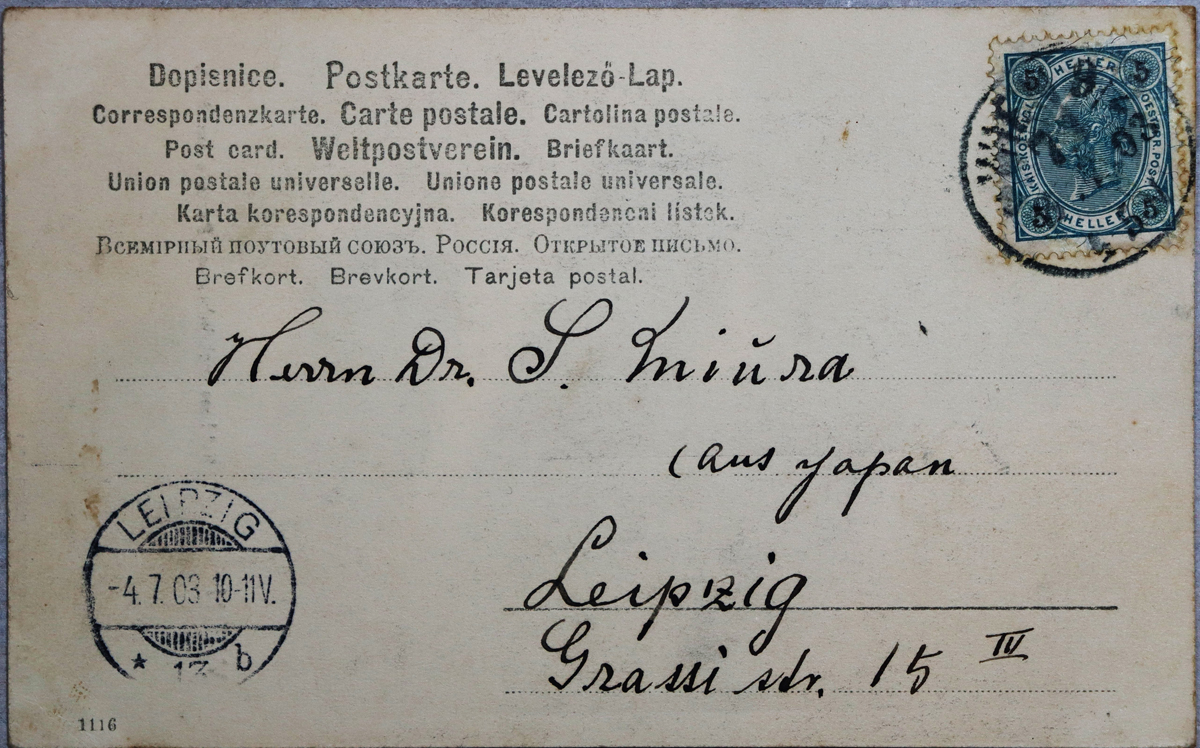 Dopisnice. Postkarte. Levelező-Lap.
Correspondenzkarte. Carte postale. Cartolina postale.
Post card. Weltpostverein. Briefkaart.
Union postale universelle. Unione postale universale.
Karta korespondencyjna. Korespondencni listek.
Всемірный поутовый союзъ. Россія. Открытое письмо.
Brefkort. Brevkort. Tarjeta postal.
5 HELLER 5
KAIS. KÖNIGL. OESTERR. POST
5 HELLER 5
Herrn Dr. S. Miŭra
(aus Japan
Leipzig
Grassi str. 15 IV
LEIPZIG
-4.7.03 10-11V.
* 13 b
1116